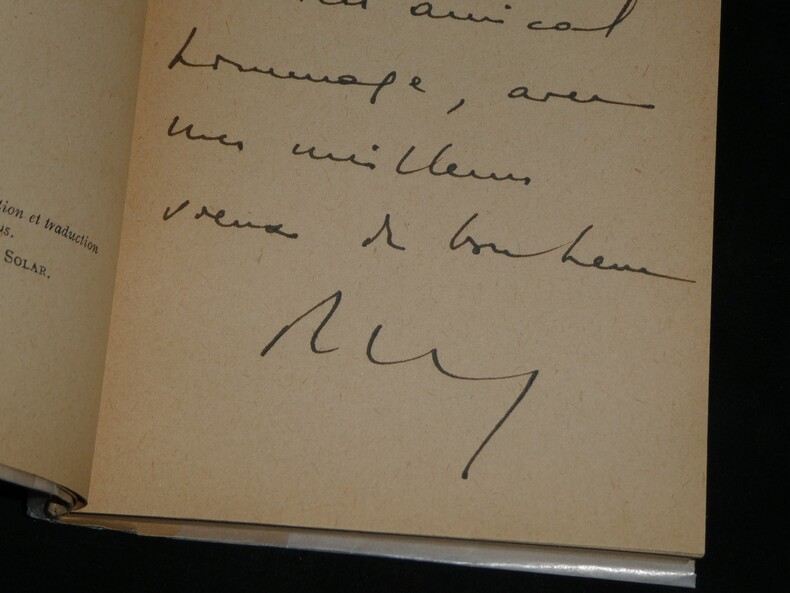 amical
hommage, avec
mes meilleurs
vœux de bonheur
tion et traduction
us.
SOLAR.